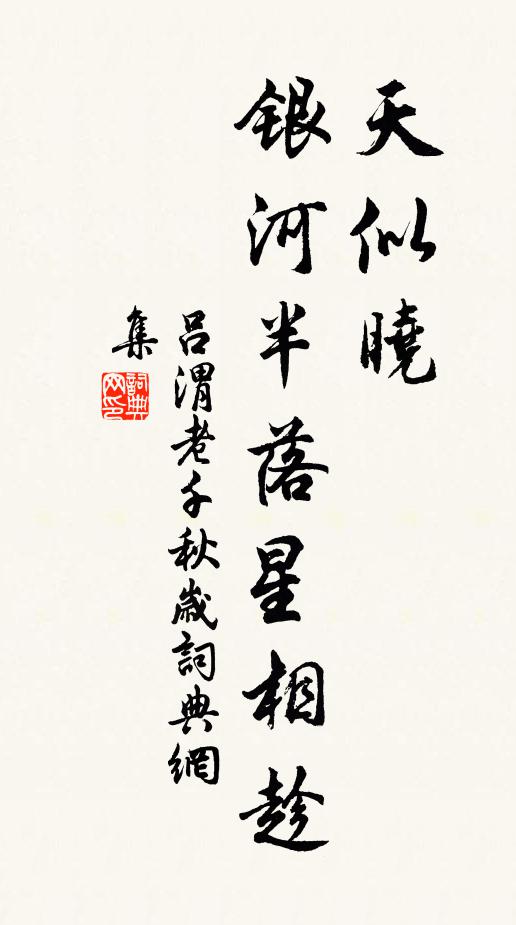 天似曉
銀河半落星相趁
吕渭老千秋歲詞典網
集
詞典
网印